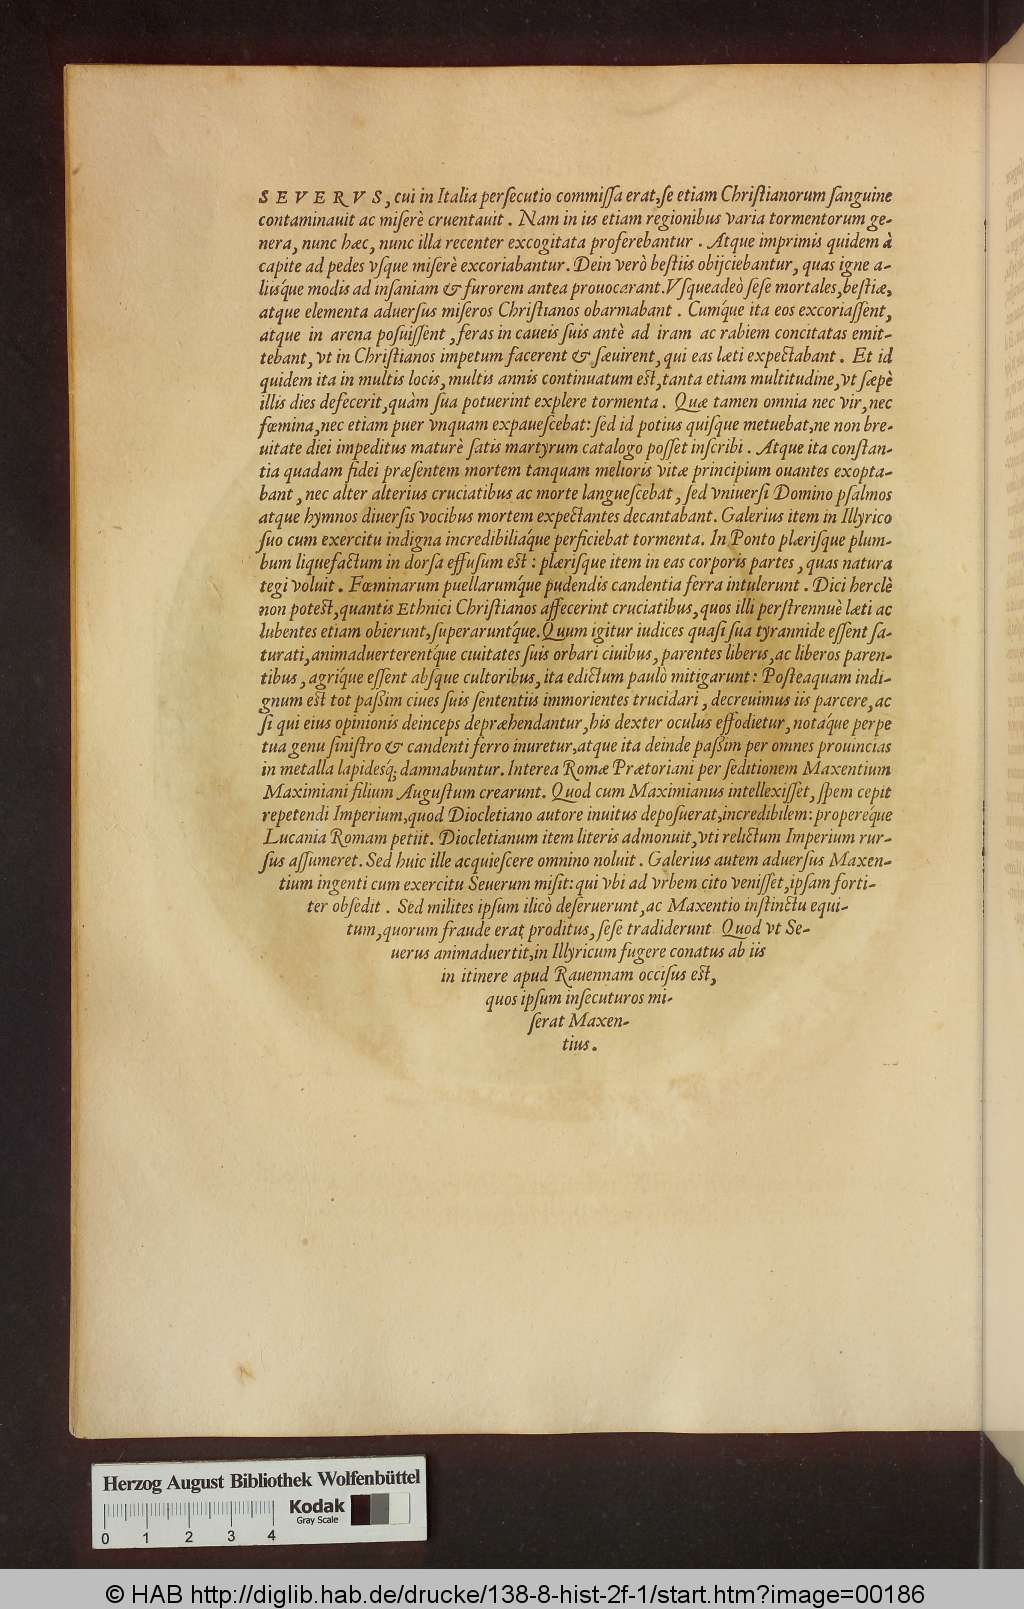 SEVERVS, cui in Italia perſecutio commiſſa erat, ſe etiam Chriſtianorum ſanguine
contaminauit ac miſerè cruentauit. Nam in ius etiam regionibus varia tormentorum ge-
nera, nunc hæc, nunc illa recenter excogitata proferebantur. Atque imprimis quidem à
capite ad pedes vſque miſerè excoriabantur. Dein verò beſtiis obijciebantur, quas igne a-
liisq́ue modis ad inſaniam & furorem antea prouocarant. Vſqueadeò ſeſe mortales, beſtiæ,
atque elementa aduerſus miſeros Chriſtianos obarmabant. Cumq́ue ita eos excoriaſſent,
atque in arena poſuiſſent, feras in caueis ſuis antè ad iram ac rabiem concitatas emit-
tebant, vt in Chriſtianos impetum facerent & ſæuirent, qui eas læti expectabant. Et id
quidem ita in multis locis, multis annis continuatum eſt, tanta etiam multitudine, vt ſæpè
illis dies defecerit, quàm ſua potuerint explere tormenta. Quæ tamen omnia nec vir, nec
fœmina, nec etiam puer vnquam expaueſcebat: ſed id potius quiſque metuebat, ne non bre-
uitate diei impeditus maturè ſatis martyrum catalogo poſſet inſcribi. Atque ita conſtan-
tia quadam fidei præſentem mortem tanquam melioris vitæ principium ouantes exopta-
bant, nec alter alterius cruciatibus ac morte langueſcebat, ſed vniuerſi Domino pſalmos
atque hymnos diuerſis vocibus mortem expectantes decantabant. Galerius item in Illyrico
ſuo cum exercitu indigna incredibiliaq́ue perficiebat tormenta. In Ponto plæriſque plum-
bum liquefactum in dorſa effuſum eſt: plæriſque item in eas corporis partes, quas natura
tegi voluit. Fœminarum puellarumq́ue pudendis candentia ferra intulerunt. Dici herclè
non poteſt, quantis Ethnici Chriſtianos affecerint cruciatibus, quos illi perſtrennuè læti ac
lubentes etiam obierunt, ſuperaruntq́ue. Quum igitur iudices quaſi ſua tyrannide eſſent ſa-
turati, animaduerterentq́ue ciuitates ſuis orbari ciuibus, parentes liberis, ac liberos paren-
tibus, agriq́ue eſſent abſque cultoribus, ita edictum paulò mitigarunt: Poſteaquam indi-
gnum eſt tot paſſim ciues ſuis ſententiis immorientes trucidari, decreuimus iis parcere, ac
ſi qui eius opinionis deinceps depræhendantur, his dexter oculus effodietur, notaq́ue perpe
tua genu ſiniſtro & candenti ferro inuretur, atque ita deinde paſſim per omnes prouincias
in metalla lapideſq; damnabuntur. Interea Romæ Prætoriani per ſeditionem Maxentium
Maximiani filium Auguſtum crearunt. Quod cum Maximianus intellexiſſet, ſpem cepit
repetendi Imperium, quod Diocletiano autore inuitus depoſuerat, incredibilem: propereq́ue
Lucania Romam petiit. Diocletianum item literis admonuit, vti relictum Imperium rur-
ſus aſſumeret. Sed huic ille acquieſcere omnino noluit. Galerius autem aduerſus Maxen-
tium ingenti cum exercitu Seuerum miſit: qui vbi ad vrbem cito veniſſet, ipſam forti-
ter obſedit. Sed milites ipſum ilicò deſeruerunt, ac Maxentio inſtinctu equi-
tum, quorum fraude erat proditus, ſeſe tradiderunt. Quod vt Se-
uerus animaduertit, in Illyricum fugere conatus ab iis
in itinere apud Rauennam occiſus eſt,
quos ipſum inſecuturos mi-
ſerat Maxen-
tius.
Herzog August Bibliothek Wolfenbüttel
Kodak
Gray Scale
0 1 2 3 4
© HAB http://diglib.hab.de/drucke/138-8-hist-2f-1/start.htm?image=00186